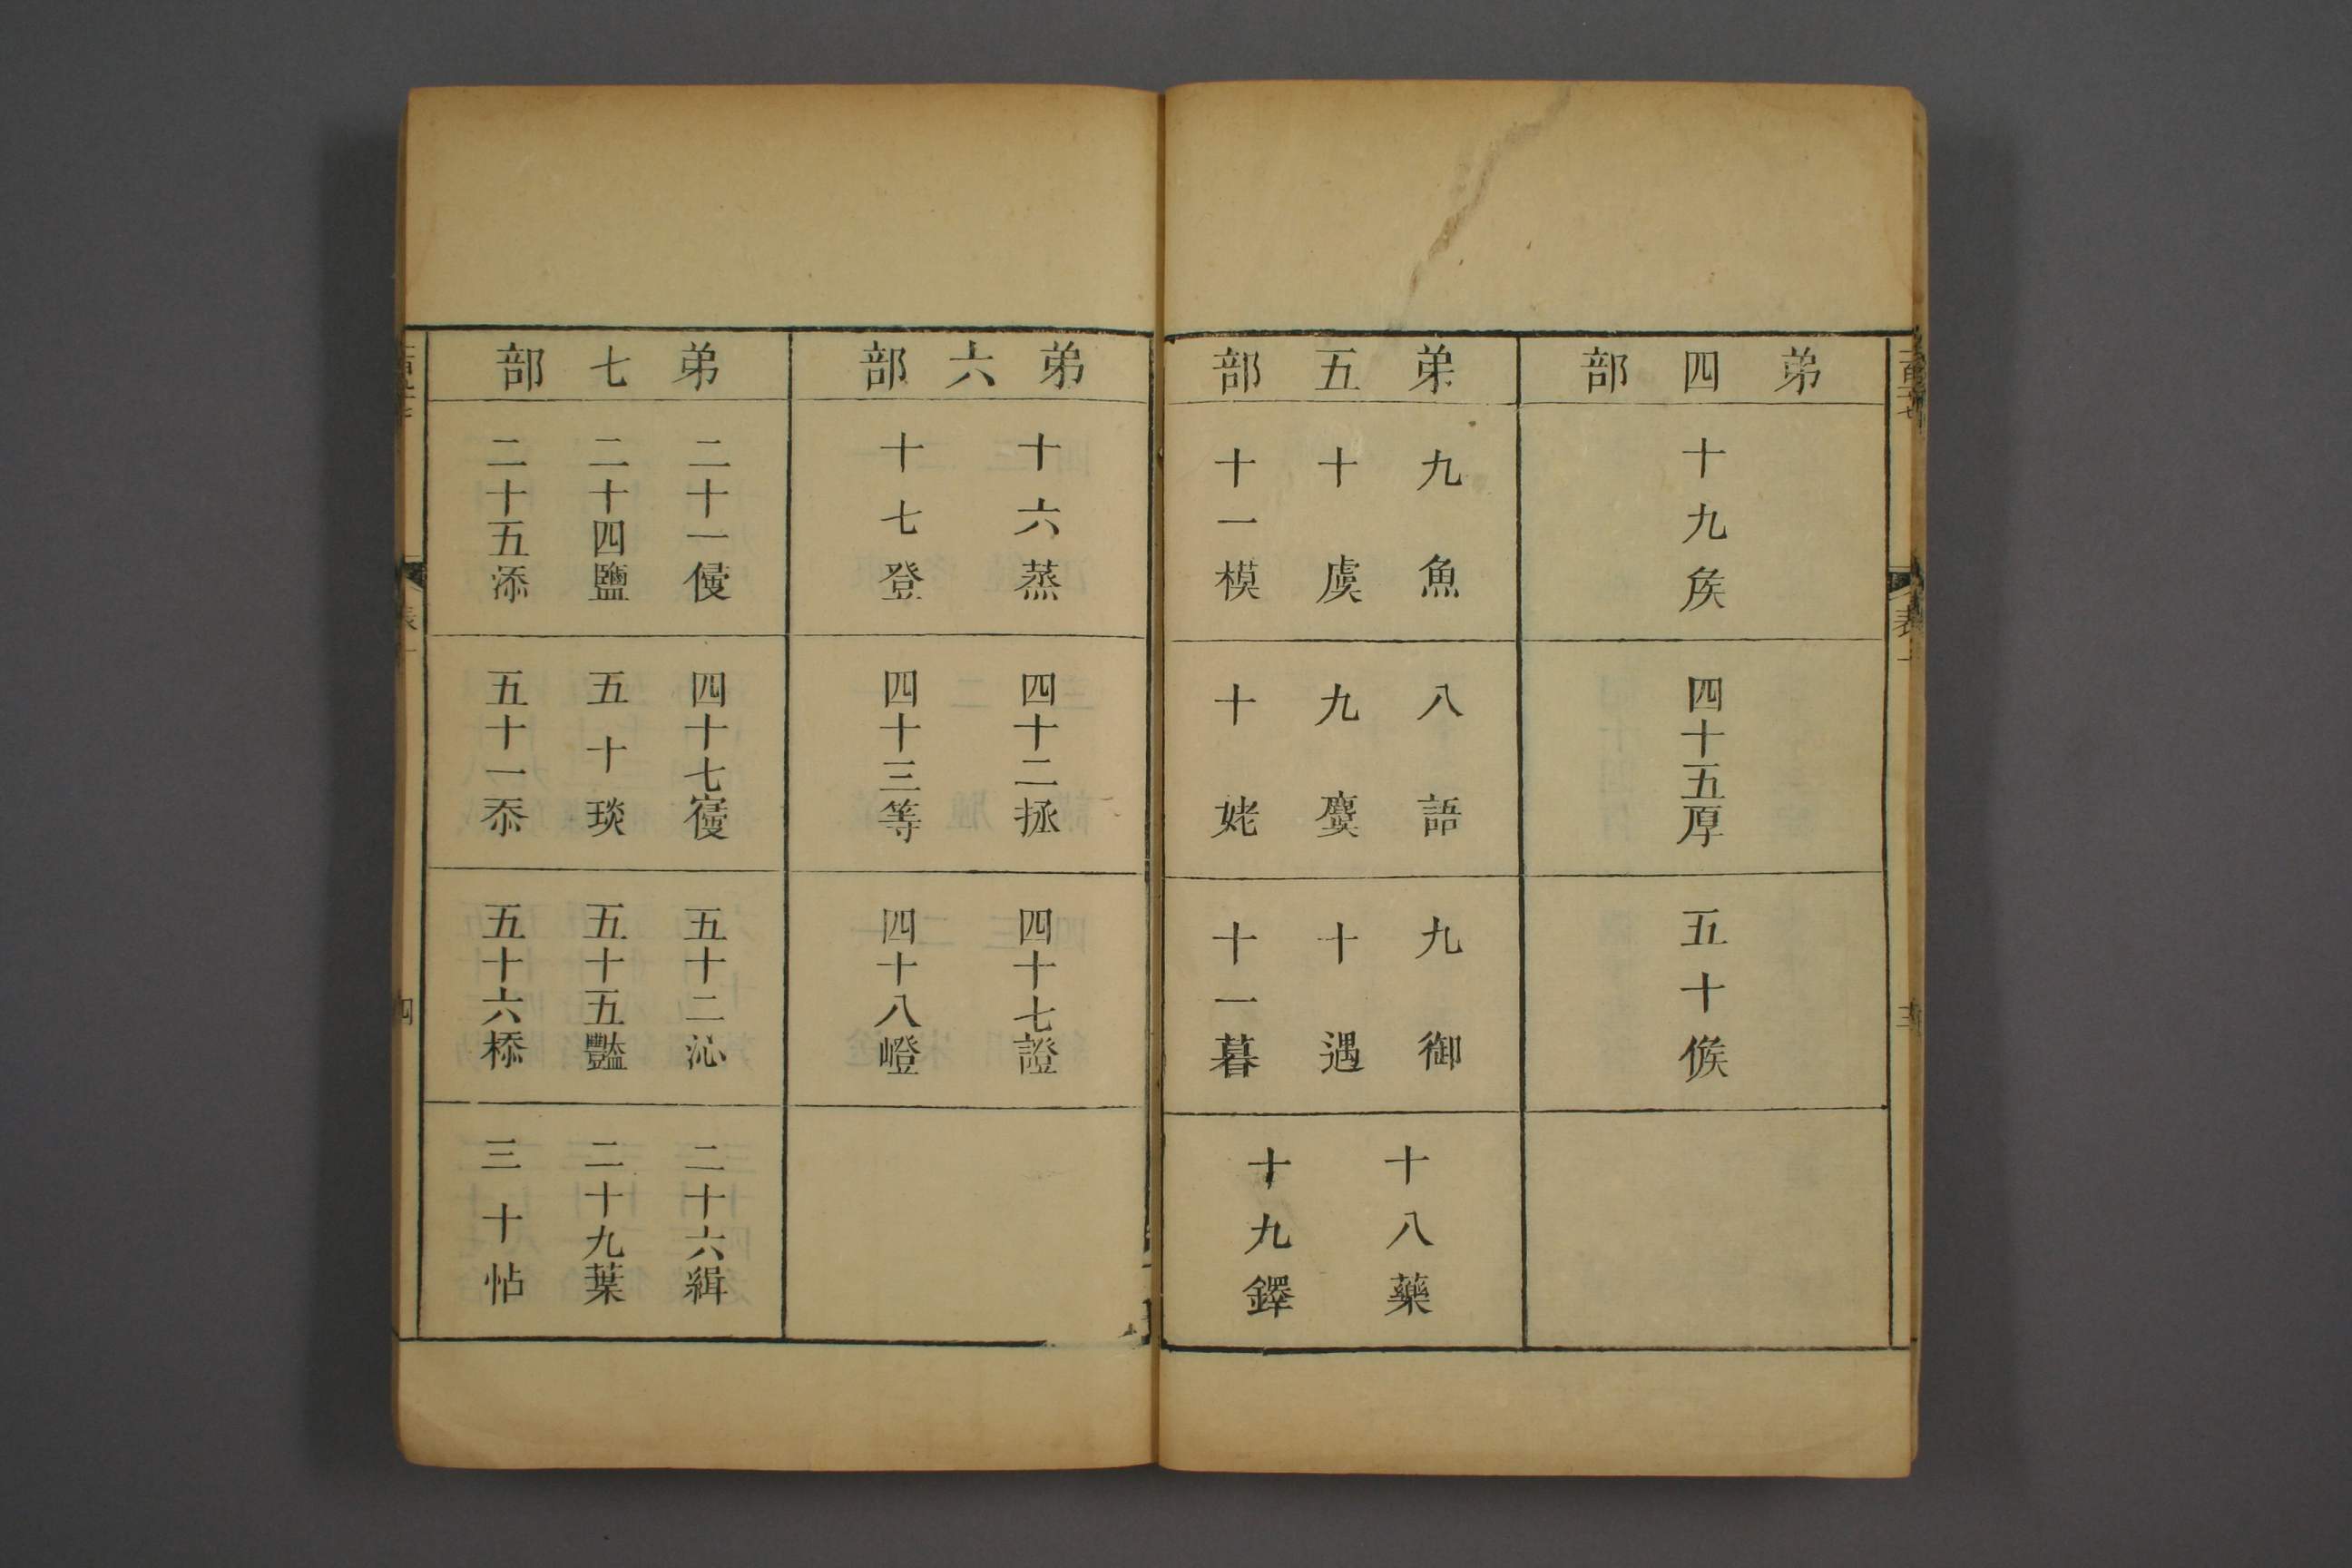 弟四部
十九矦
四十五厚
五十候
弟五部
九魚
十虞
十一模
八語
九麌
十姥
九御
十遇
十一暮
十八藥
十九鐸
弟六部
十六蒸
十七登
四十二拯
四十三等
四十七證
四十八嶝
弟七部
二十一侵
二十四鹽
二十五添
四十七寑
五十琰
五十一忝
五十二沁
五十五豔
五十六㮇
二十六緝
二十九葉
三十帖
表一
四